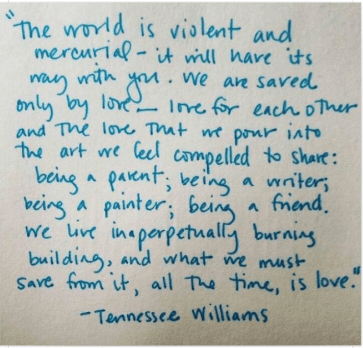 "The world is violent and
mercurial - it will have its
way with you. We are saved
only by love — love for each other
and The love That we pour into
the art we feel compelled to share:
being a parent; being a writer;
being a painter; being a friend.
We live in a perpetually burning
building, and what we must
save from it, all The time, is love."
- Tennessee Williams